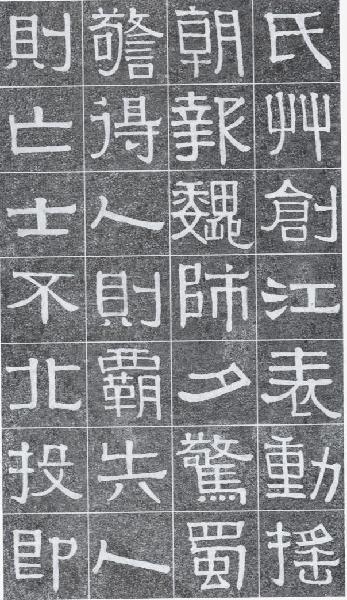 氏艸創江表動搖
朝報魏師夕驚蜀
警得人則霸失人
則亡士不北投即